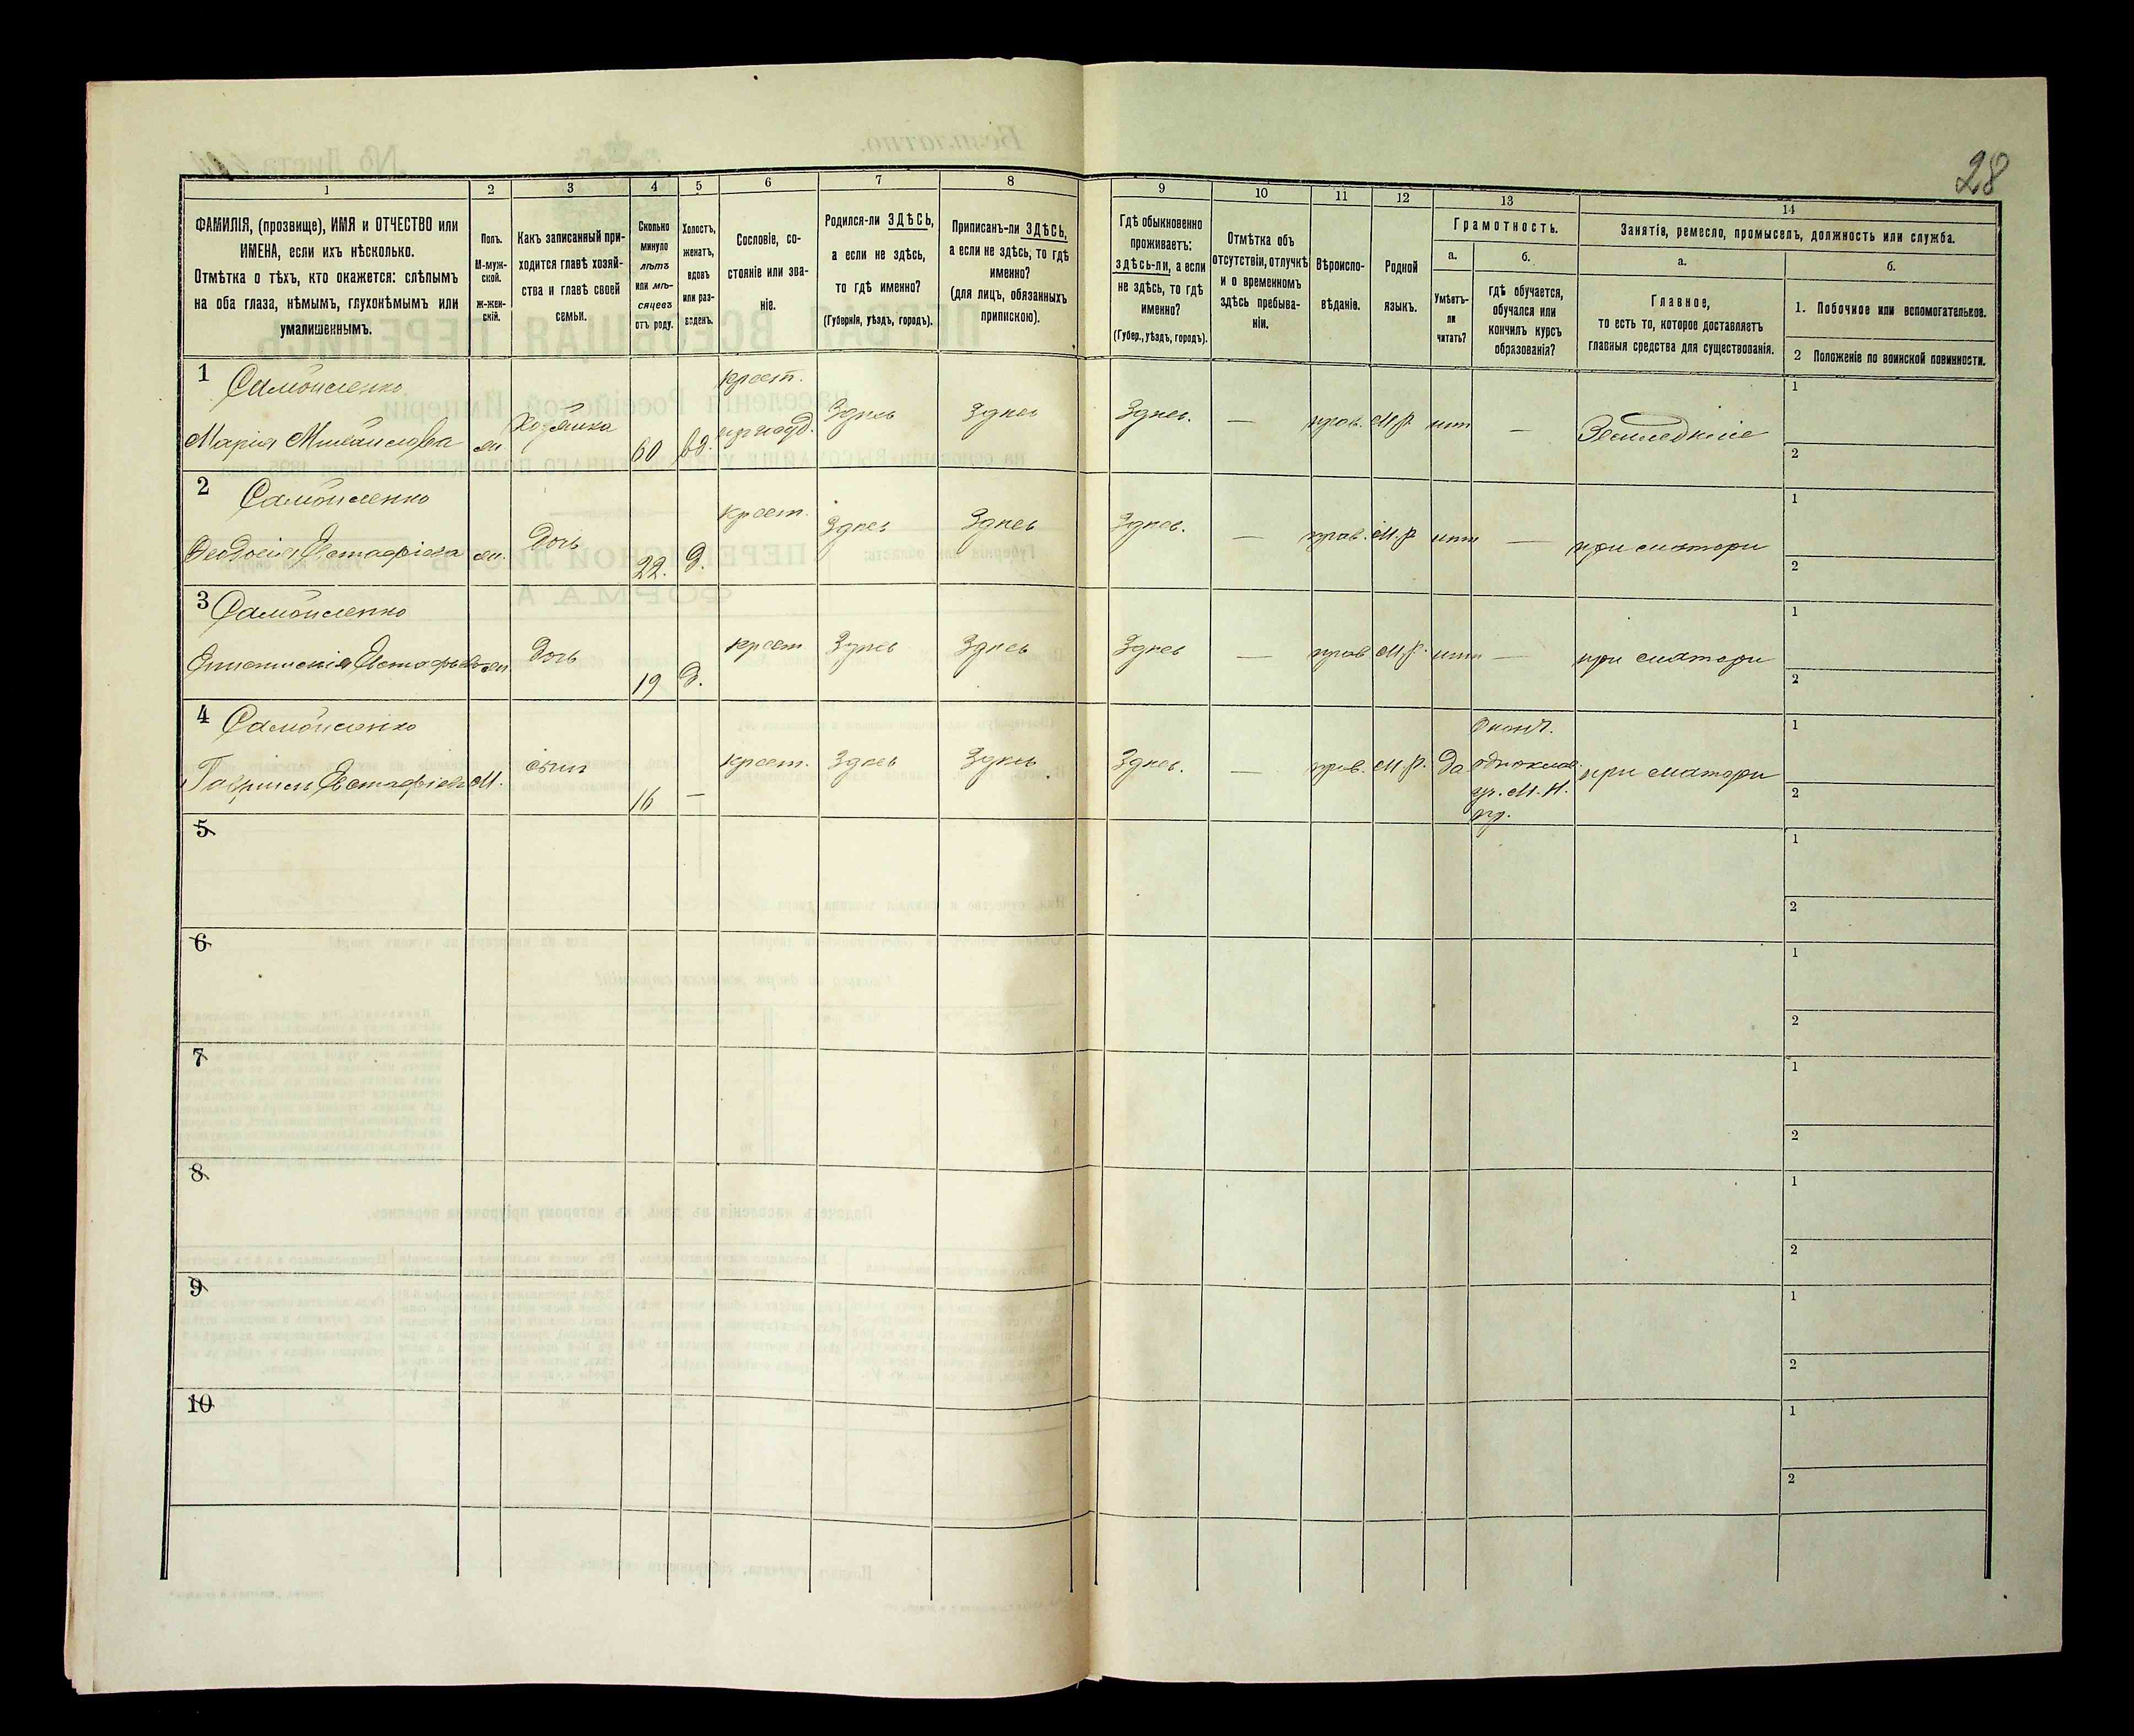 28
1 2 3 4 5 6 7 8 9 10 11 12 13 14
ФАМИЛІЯ, (прозвище), ИМЯ и ОТЧЕСТВО или
ИМЕНА, если ихъ нѣсколько.
Отмѣтка о тѣхъ, кто окажется: слѣпымъ
на оба глаза, нѣмымъ, глухонѣмымъ или
умалишеннымъ.
Полъ.
М-муж-
ской.
ж-жен-
скій.
Какъ записанный при-
ходится главѣ хозяй-
ства и главѣ своей
семьи.
Сколько
минуло
лѣтъ
или мѣ-
сяцевъ
отъ роду.
Холостъ,
женатъ,
вдовъ
или раз-
веденъ.
Сословіе, со-
стояніе или зва-
ніе.
Родился-ли ЗДѢСЬ,
а если не здѣсь,
то гдѣ именно?
(Губернія, уѣздъ, городъ).
Приписанъ-ли ЗДѢСЬ,
а если не здѣсь, то гдѣ
именно?
(для лицъ, обязанныхъ
припискою).
Гдѣ обыкновенно
проживаетъ:
здѣсь-ли, а если
не здѣсь, то гдѣ
именно?
(Губер., уѣздъ, городъ).
Отмѣтка объ
отсутствіи, отлучкѣ
и о временномъ
здѣсь пребыва-
ніи.
Вѣроиспо-
вѣданіе.
Родной
языкъ.
Грамотность.
а.
Умѣетъ-
ли
читать?
б.
гдѣ обучается,
обучался или
кончилъ курсъ
образованія?
Занятія, ремесло, промыселъ, должность или служба.
а.
Главное,
то есть то, которое доставляетъ
главныя средства для существованія.
б.
1. Побочное или вспомогательное.
2 Положеніе по воинской повинности.
1 Самойленко крест. 1
Марія Михайлова ж. Хозяйка 60 вд. Здѣсь Здѣсь Здѣсь. — прав. М.р. нѣт — Земледѣліе
2
2 Самойленко крест. 1
Ѳеодосія Евстафіева ж. дочь 22. д. Здѣсь Здѣсь Здѣсь. — прав. М.р. нѣт — при матери
2
3 Самойленко 1
ж дочь 19 д. крест Здѣсь Здѣсь Здѣсь — прав М.р. нѣт — при матери
2
4 Самойленко Оконч. 1
Гавріилъ Евстафіевъ М. сынъ 16 — крест. Здѣсь Здѣсь Здѣсь. — прав. М.р. Да одноклас. при матери
М. Н.
2
5 1
2
6 1
2
7 1
2
8 1
2
9 1
2
10 1
2